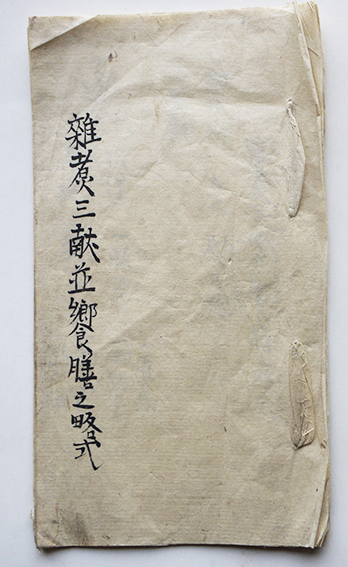 雑煮三献並饗膳之略式